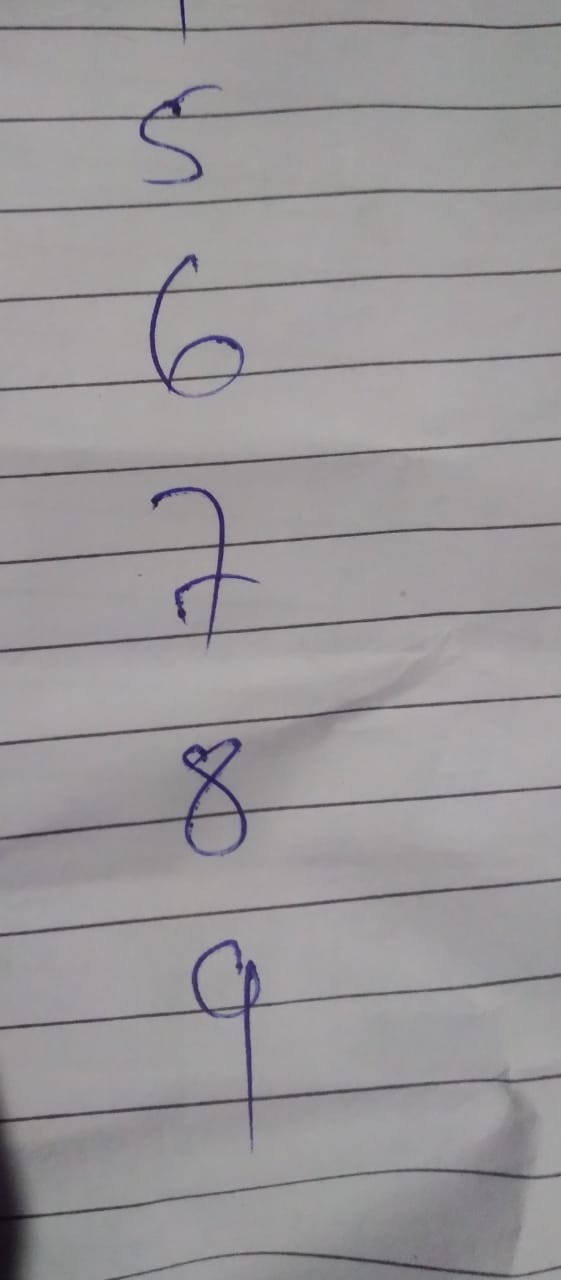 5
6
7
8
9